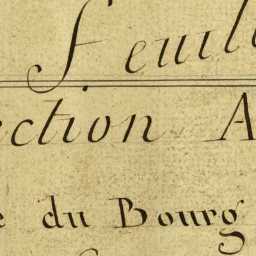 feuill
ection A
e du Bourg